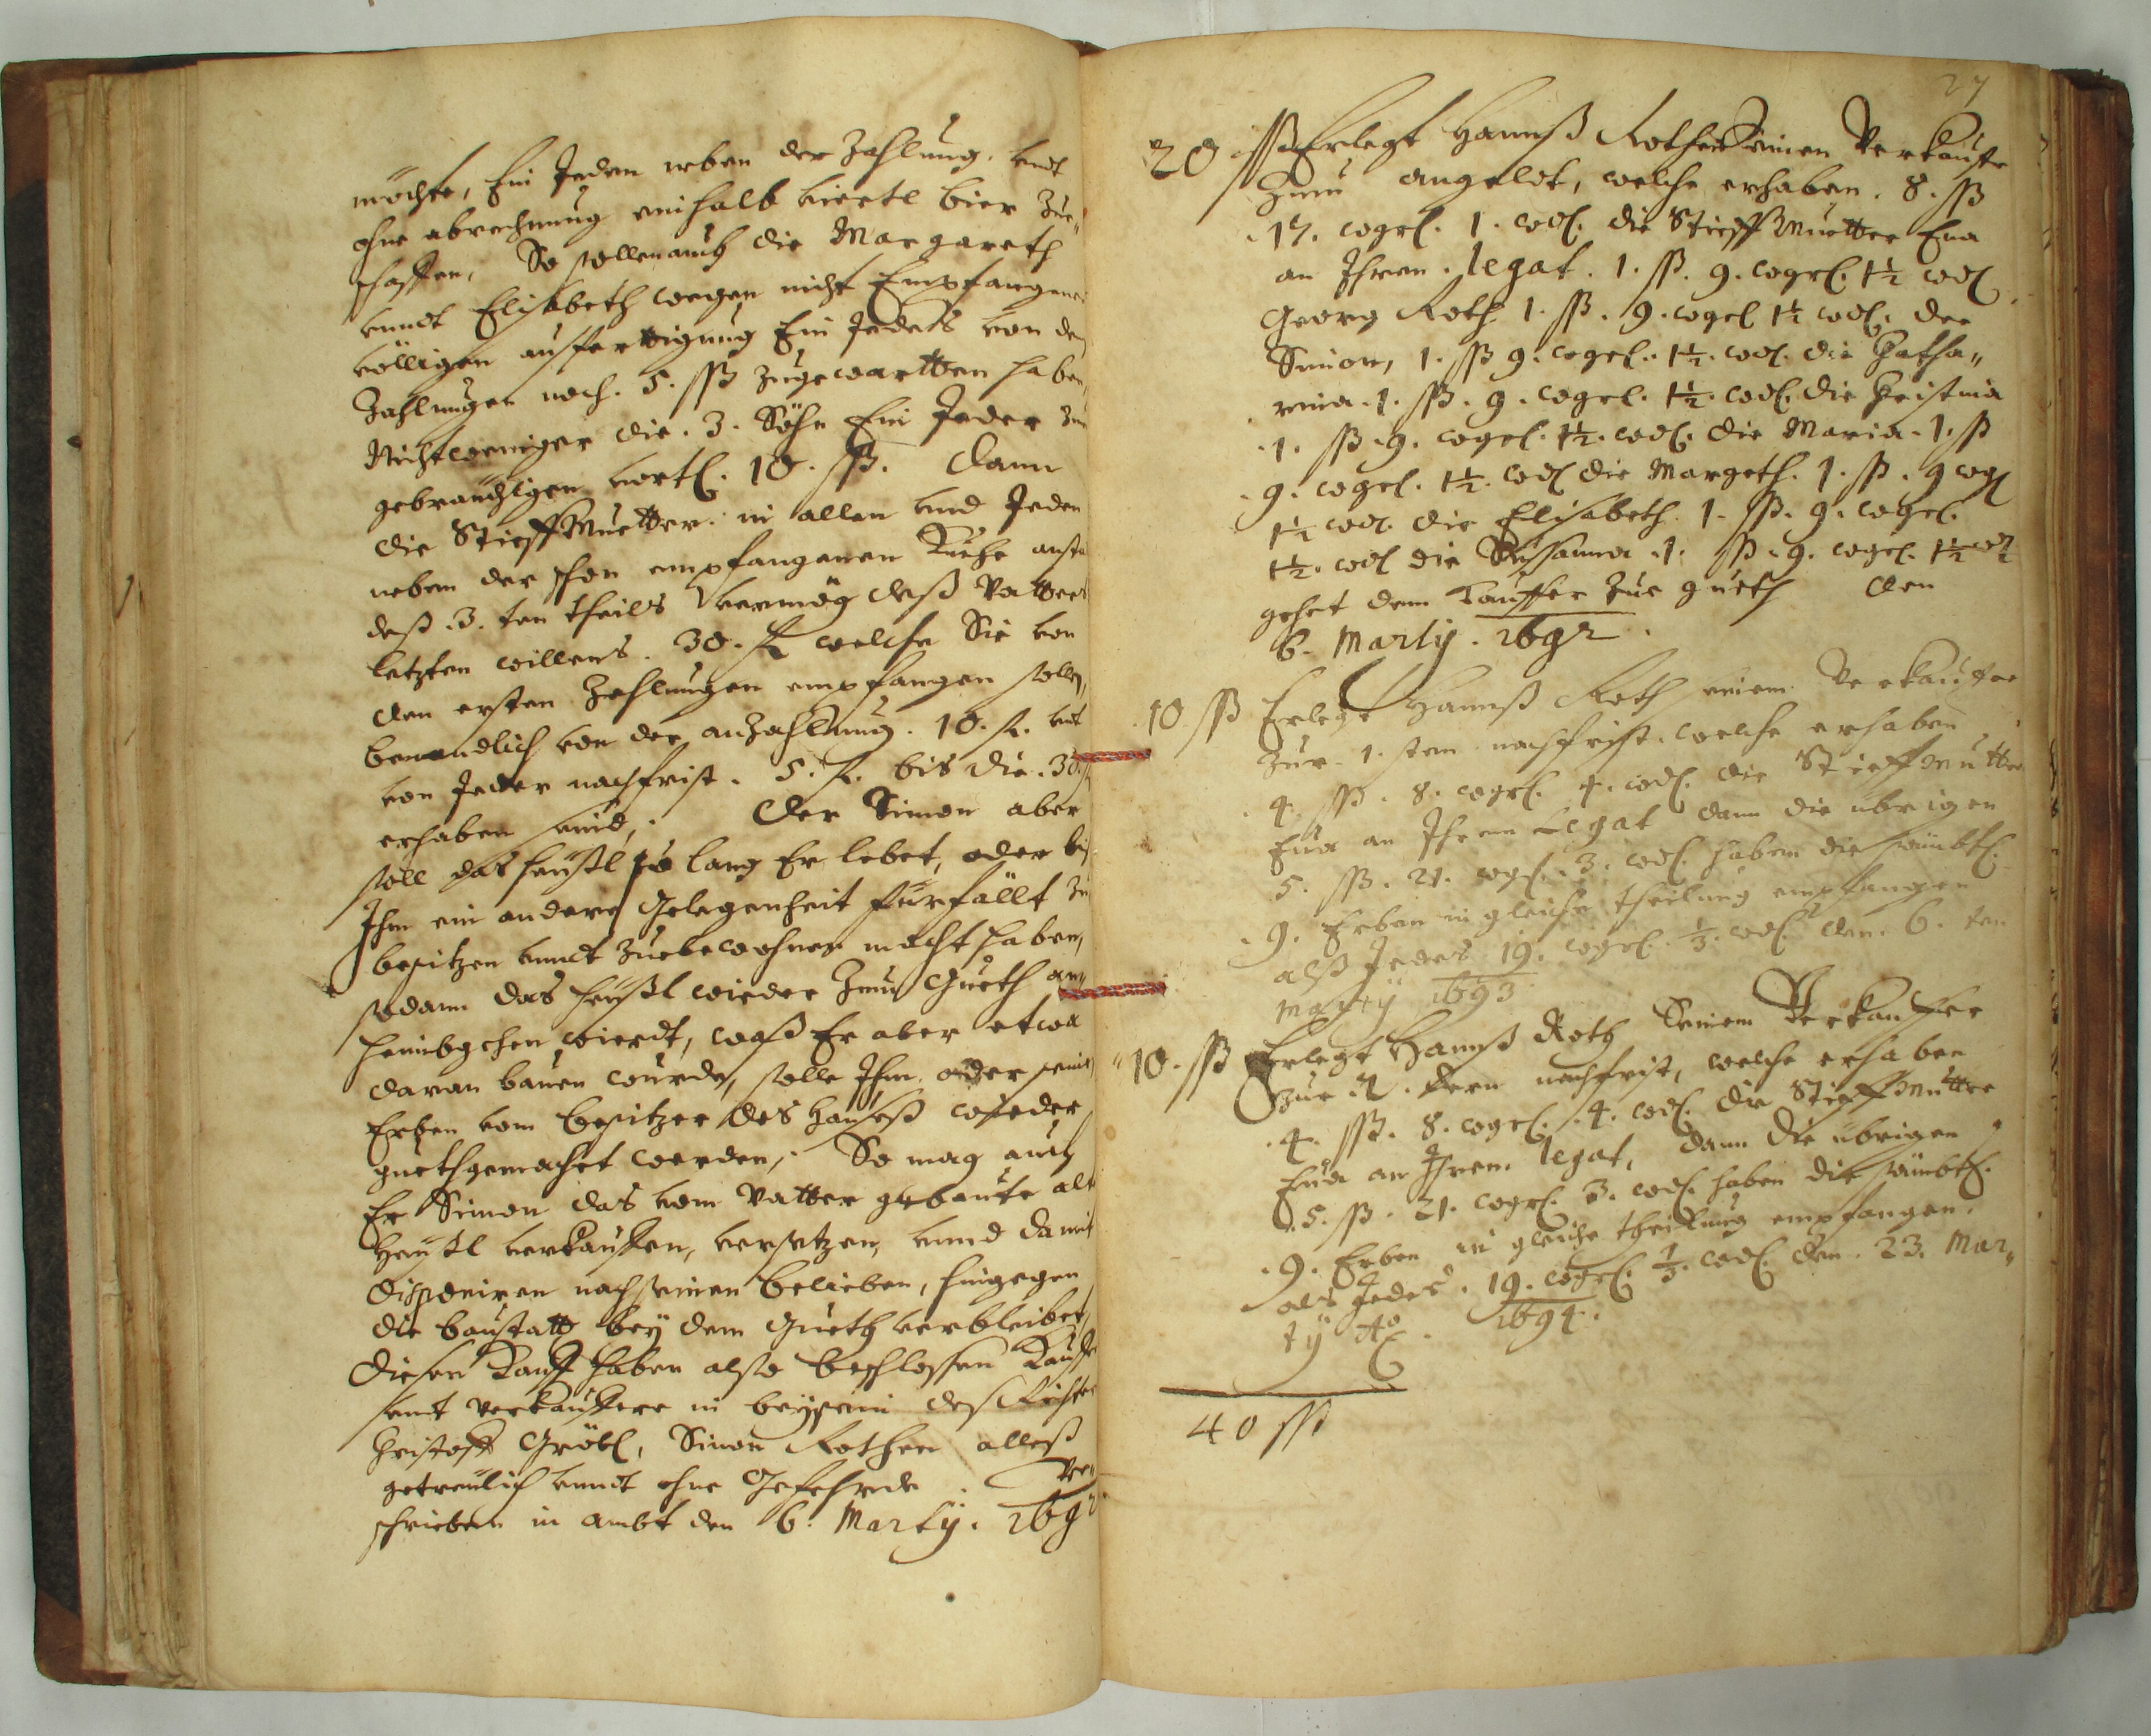 möchte, Ein Jeden neben der Zahlung, undt
ohne abrechnung einhalb viertl bier zue
schaffen, So sollen auch die Margareth
unndt Elisabeth wegen nicht Empfangener
völligen außferttigung Ein Jedes von den
Zahlungen noch. 5. ßß zuegewartten haben
Nichtweniger die. 3. Söhn Ein Jeder zue
gebräuchigen 10. ßß. dann
die Stieffmuetter. in allen und Jeden
neben der schon empfangenen Kuehe anstat
deß .3. ten theils vermög deß Vatters
letzten willens. 30. fl welche Sie von
den ersten Zahlungen empfangen solle,
benandlich von der anzahlung. 10. fl. undt
von Jeder nachfrist. 5. fl. bis die. 30. fl
erhaben seind, Der Simon aber
soll das heüßl so lang Er lebet, oder bis
Ihm ein andere Gelegenheit fürfällt zu
besitzen unndt zuebewohnen macht haben,
sodann das heüßl wieder zum Gueth an
heimbgehen wierdt, waß Er aber etwa
daran bauen wurde, solle Ihm oder seinen
Erben vom besitzer des Haußeß wieder
guethgemachet werden, So mag auch
Er Simon das vom Vatter gebaute alte
Heüßl verkauffen, versetzen, unnd damit
disponiren nach seinen belieben, hingegen
die baustatt bey dem Gueth verbleibet,
Diesen Kauff haben also beschlossen Kauffer
sambt Verkauffere in beysein deß Richters
Christoff Gröbl, Simon Rothen alleß
getreulich unndt ohne Gefehrde. Ver
schrieben in ambt den 6. Martÿ. 1692
27
20 ßß Erlegt Hannß Rothe seinen Verkauffer
zum angeldt, welche erhaben. 8. ßß
.17. wgrl. 1. wdl. die Stieffmuetter Eva
an Ihrem. legat. 1. ßß. 9. wgrl. 1½ wdl.
Georg Roth 1. ßß. 9. wgrl 1½ wdl. der
Simon, 1. ßß 9. wgrl. 1½. wdl. die Catha„
rina. 1. ßß. 9. wgrl. 1½. wdl. die Christina
.1. ßß. 9. wgrl. 1½. wdl. die Maria. 1. ßß
.9. wgrl. 1½. wdl die Margeth. 1. ßß. 9 wgl
1½ wdl. die Elisabeth. 1. ßß. 9. wgrl.
1½. wdl die Susanna .1. ßß. 9. wgrl. 1½ wdl
gehet dem Kauffer zue gueth den
6. Martÿ. 1692.
10 ßß Erlegt Hannß Roth seinem Verkauffer
zur. 1. sten nachfrist, welche erhaben
.4. ßß. 8. wgrl. 4. wdl. die Stieffmutter
Eva an Ihrem Legat dann die übrigen
5. ßß. 21. wgl. 3. wdl. haben die sämbtl.
.9. Erben in gleiche theilung empfangen
alß Jedes 19. wgrl. ⅓. wdl den. 6. ten
Martÿ 1693
10. ßß Erlegt Hannß Roth Seinem Verkauffer
zur .2. tern nachfrist, welche erhaben
.4. ßß. 8. wgrl. .4. wdl. die Stieffmutter
Eva an Ihrem legat, dann die übrigen
.5. ßß. 21. wgrl. 3. wdl. haben die sämbtl.
.9. Erben in gleiche theilung empfangen.
als Jedes. 19. wgrl. ⅓. wdl. den. 23. Mar„
tÿ Ao. 1694.
40 ßß